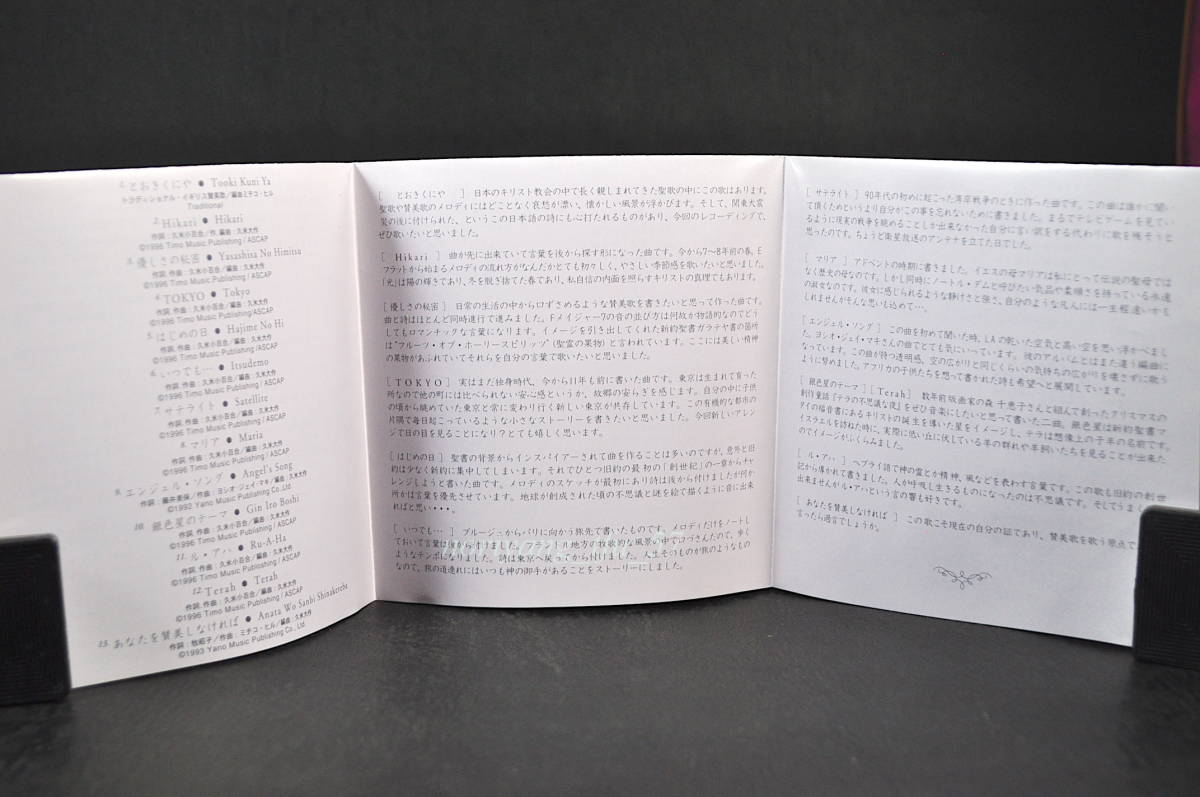 1. とおきくにや ● Tooki Kuni Ya
トラディショナル・イギリス賛美歌／編曲ミチコ・ヒル
Traditional
2. Hikari ● Hikari
作詞．作曲：久米小百合／編曲：久米大作
©1996 Timo Music Publishing/ASCAP
3. 優しさの秘密 ● Yasashisa No Himitsu
作詞．作曲：久米小百合／編曲：久米大作
©1996 Timo Music Publishing/ASCAP
4. TOKYO ● Tokyo
作詞．作曲：久米小百合／編曲：久米大作
©1996 Timo Music Publishing/ASCAP
5. はじめの日 ● Hajime No Hi
作詞．作曲：久米小百合／編曲：久米大作
©1996 Timo Music Publishing/ASCAP
6. いつでも… ● Itsudemo
作詞．作曲：久米小百合／編曲：久米大作
©1996 Timo Music Publishing / ASCAP
7. サテライト ● Satellite
作詞．作曲：久米小百合／編曲：久米大作
©1996 Timo Music Publishing / ASCAP
8. マリア ● Maria
作詞．作曲：久米小百合／編曲：久米大作
©1996 Timo Music Publishing / ASCAP
9. エンジェル・ソング ● Angel's Song
作詞：藤井美保／作曲：ヨシオ ジェイ・マキ／編曲：久米大作
©1992 Yano Music Publishing Co., Ltd.
10. 銀色星のテーマ ● Gin Iro Boshi
作詞．作曲：久米小百合／編曲：久米大作
©1996 Timo Music Publishing / ASCAP
11. ル・アハ ● Ru-A-Ha
作詞．作曲：久米小百合／編曲：久米大作
©1996 Timo Music Publishing / ASCAP
12. Terah ● Terah
作詞．作曲：久米小百合／編曲：久米大作
©1996 Timo Music Publishing / ASCAP
13. あなたを賛美しなければ ● Anata Wo Sanbi Shinakereba
作詞：牧昭子／作曲：ミチコ・ヒル／編曲：久米大作
©1993 Yano Music Publishing Co., Ltd.
［ とおきくにや ］ 日本のキリスト教会の中で長く親しまれてきた聖歌の中にこの歌はあります。
聖歌や賛美歌のメロディにはどことなく哀愁が漂い、懐かしい風景が浮かびます。そして、関東大震
災の後に付けられた、というこの日本語の詩にも心打たれるものがあり、今回のレコーディングで、
ぜひ歌いたいと思いました。
［ Hikari ］ 曲が先に出来ていて言葉を後から探す形になった曲です。今から7〜8年前の春。E
フラットから始まるメロディの流れ方がなんだかとても初々しく、やさしい季節感を歌いたいと思いました。
「光」は陽の輝きであり、冬を脱ぎ捨てた春であり、私自信の内面を照らすキリストの真理でもあります。
［優しさの秘密］ 日常の生活の中から口ずさめるような賛美歌を書きたいと思って作った曲です。
曲と詩はほとんど同時進行で進みました。Fメイジャー7の音の並び方は何故か物語的なのでどう
してもロマンチックな言葉になります。イメージを引き出してくれた新約聖書ガラテヤ書の箇所
は"フルーツ・オブ・ホーリースピリッツ"（聖霊の果物）と言われています。ここには美しい精神
の果物があふれていてそれらを自分の言葉で歌いたいと思いました。
［TOKYO］ 実はまだ独身時代、今から11年も前に書いた曲です。東京は生まれて育った
所なので他の町には比べられない安心感というか、故郷の安らぎを感じます。自分の中に子供
の頃から眺めていた東京と常に変わり行く新しい東京が共存しています。この有機的な都市の
片隅で毎日起こっているような小さなストーリーを書きたいと思いました。今回新しいアレン
ジで日の目を見ることになり？とても嬉しく思います。
［はじめの日］ 聖書の背景からインスパイアーされて曲を作ることは多いのですが、意外と旧
約は少なく新約に集中してしまいます。それでひとつ旧約の最初の「創世紀」の一章からチャ
レンジしようと書いた曲です。メロディのスケッチが最初にあり詩は後から付けましたが何か
所かは言葉を優先させています。地球が創成された頃の不思議と謎を絵で描くように音に出来
ればと思い・・・。
［いつでも…］ ブルージュからパリに向かう旅先で書いたものです。メロディだけをノートし
ておいて言葉は
地方の牧歌的な風景の中で口づさんだので、歩く
ようなテンポになりました。詩は東京へ戻ってから付けました。人生そのものが旅のようなもの
なので、旅の道連れにはいつも神の御手があることをストーリーにしました。
［サテライト］ 90年代の初めに起こった湾岸戦争のときに作った曲です。この曲は誰かに聞い
て頂くためというより自分がこの事を忘れないために書きました。まるでテレビゲームを見てい
るように現実の戦争を眺めることしか出来なかった自分に言い訳をする代わりに歌を残そうと
思ったのです。ちょうど衛星放送のアンテナを立てた日でした。
［マリア］ アドベントの時期に書きました。イエスの母マリアは私にとって伝説の聖母では
なく歴史の母なのです。しかし同時にノートル・ダムと呼びたい気品や柔順さを持っている永遠
の淑女なのです。彼女に感じられるような静けさと強さ、自分のような凡人には一生程遠いかも
しれませんがそんな思いも込めて…。
［エンジェル・ソング］ この曲を初めて聞いた時、LAの乾いた空気と高い空を思い浮かべまし
た。ヨシオ・ジェイ・マキさんの曲でとても気にいっています。彼のアルバムとはまた違う編曲に
なっています。この曲が持つ透明感、空の広がりと同じくらいの気持ちの広がりを壊さずに歌う
ように努めました。アフリカの子供たちを想って書かれた詩も希望へと展開しています。
［銀色星のテーマ］［Terah］ 数年前版画家の森 千恵子さんと組んで創ったクリスマスの
創作童話「テラの不思議な夜」をぜひ音楽にしたいと思って書いた二曲。銀色星は新約聖書マ
タイの福音書にあるキリストの誕生を導いた星をイメージし、テラは想像上の子羊の名前です。
イスラエルを訪ねた時に、実際に低い丘に伏している羊の群れや羊飼いたちを見ることが出来た
のでイメージがふくらみました。
［ル・アハ］ ヘブライ語で神の霊とか精神、風などを表わす言葉です。この歌も旧約の創世
記から導かれて書きました。人が呼吸し生きるものになったのは不思議です。そしてうまく
出来ませんがル・アハという言の響も好きです。
［あなたを賛美しなければ］ この歌こそ現在の自分の証であり、賛美歌を歌う原点で
言ったら過言でしょうか。